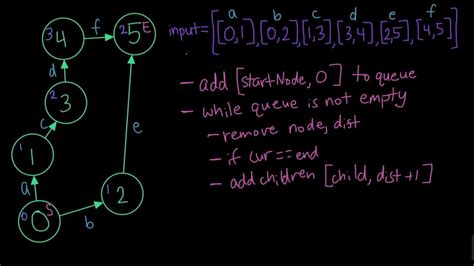 a b c d e f
input=[[0,1],[0,2],[1,3],[3,4],[2,5],[4,5]]
- add [startNode, 0] to queue
- while queue is not empty
- remove node, dist
- if cur==end
- add children [child, dist+1]
3 4 f 2 5 E
d
2 3
c e
1 1
a 1 2
0 0 S b